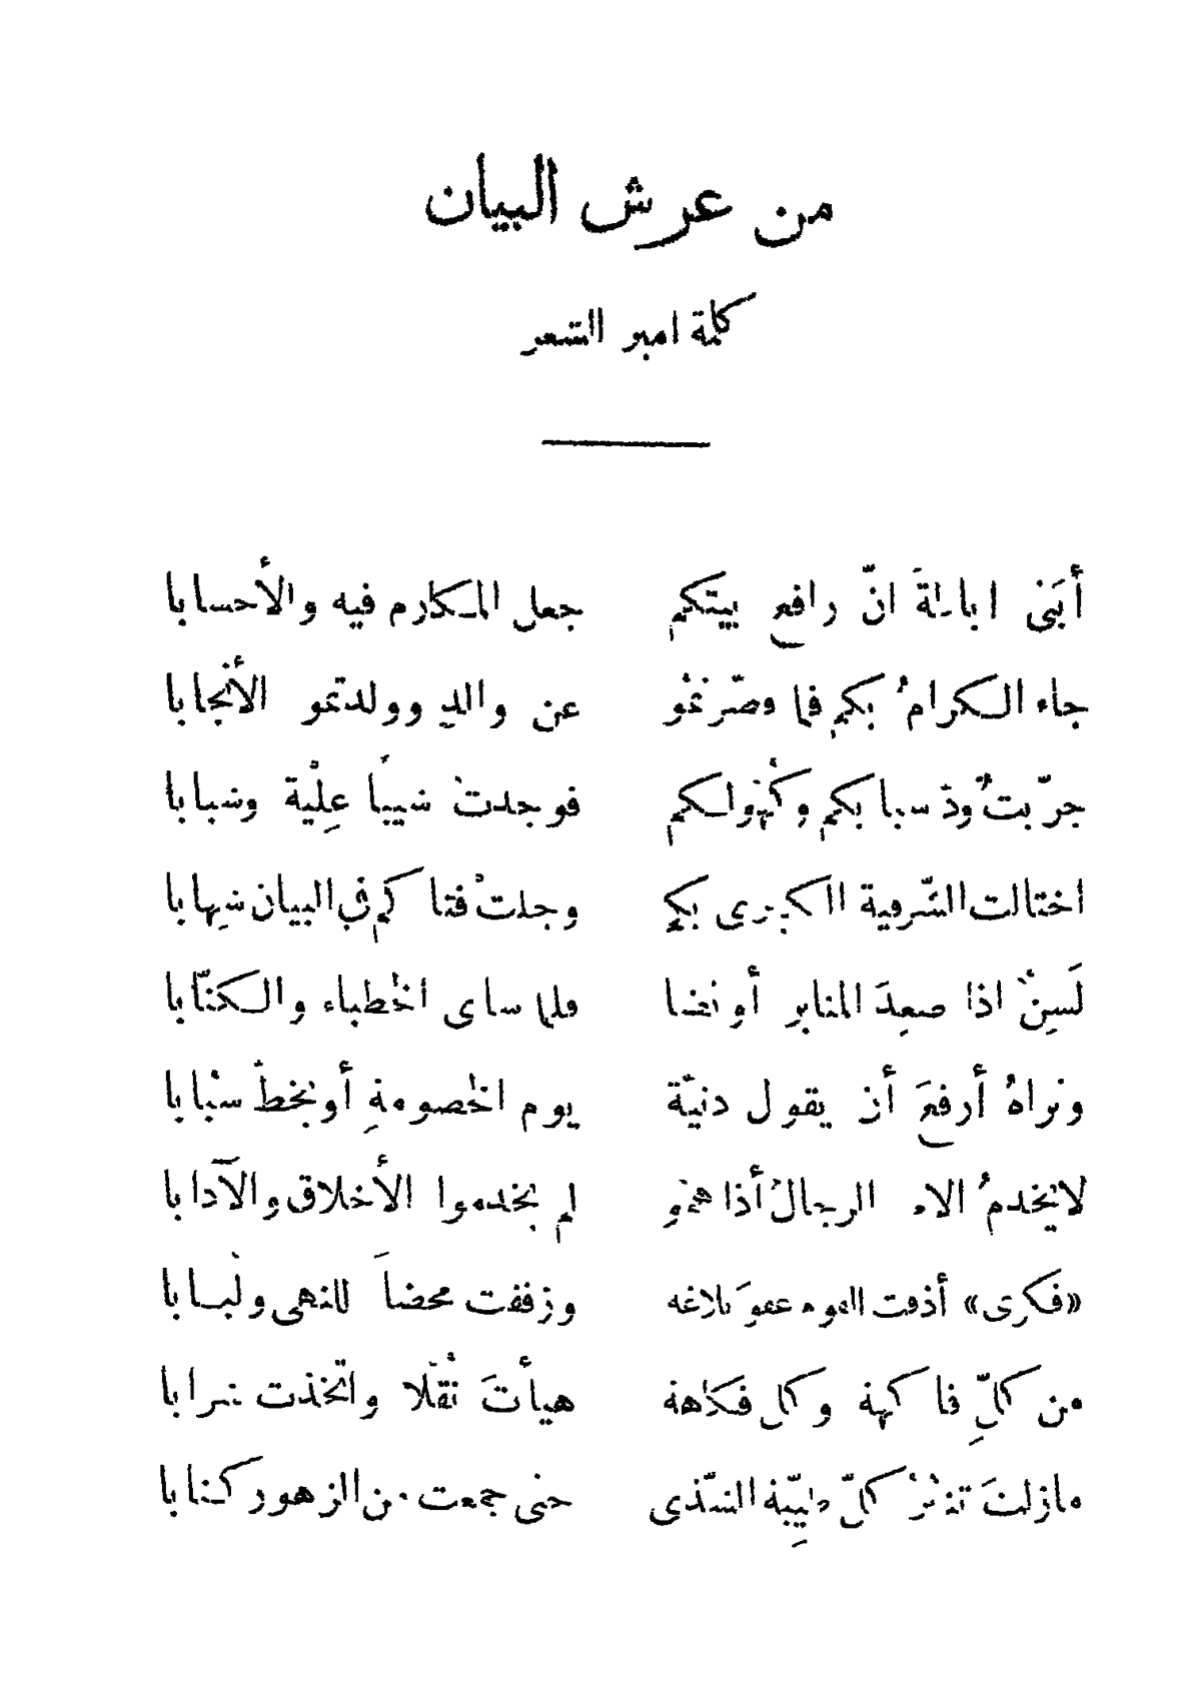 من عرش البيان
كلمة امير الشعر
أبَنى اباظةَ انّ رافع بيتكم جعل المكارم فيه والأحسابا
جاء الكرامُ بكم فما قصّرتمُو عن والدٍ وولدتمو الأنجابا
جرّبتُ ودّ شبابكم وكُهولكم فوجدت شيبًا عِلْية وشبابا
اختالت الشّرقية الكبرى بكم وجلتْ فتاكم فى البيان شِهابا
لَسِنٌ اذا صعِدَ المنابر أو نضا قلما شأى الخطباء والكتّابا
ونراهُ أرفعَ أن يقول دنيّة يوم الخصومةِ أو يخطّ سبُابا
لا يخدمُ الامم الرجالُ أذا همُو لم يخدموا الأخلاق والآدابا
«فكرى» أذقت القوم عفوَ بلاغة وزففت محضاً للنهى ولُبابا
من كلِّ فاكهة وكل فكاهة هيأتَ نُقْلا واتخذت شرابا
مازلتَ تنثرُ كلّ طيِّبة الشّذى حتى جمعت من الزهور كتابا